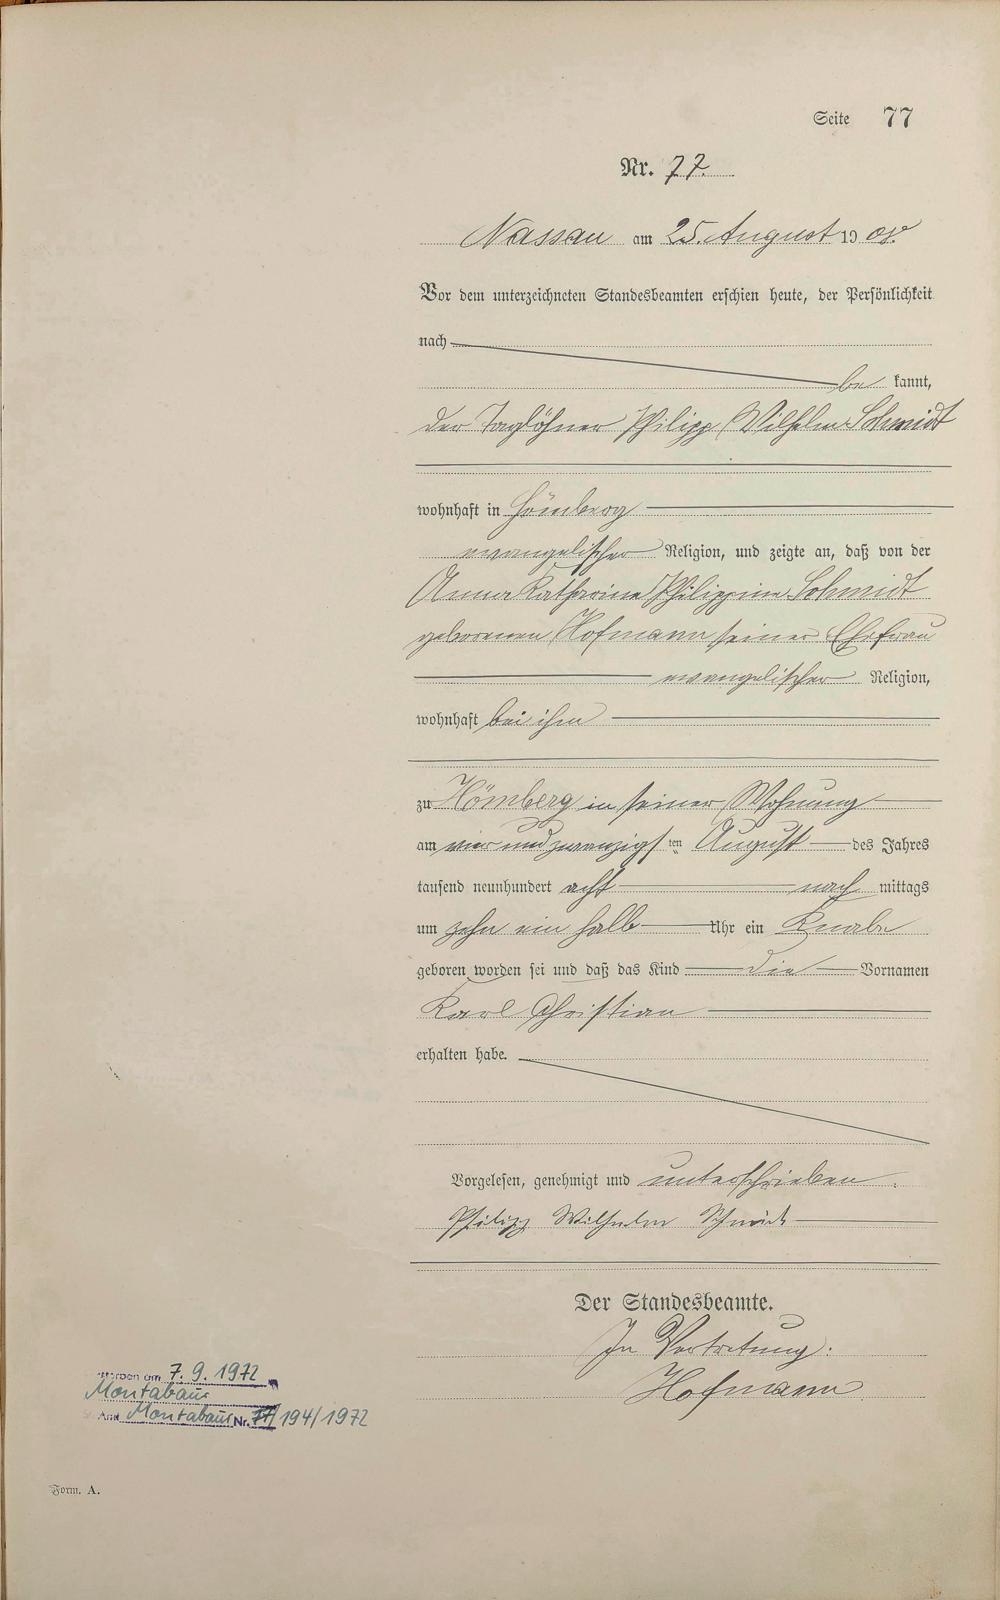 Seite 77
Nr. 77.
Nassau am 25. August 19 08.
Vor dem unterzeichneten Standesbeamten erschien heute, der Persönlichkeit
nach
be kannt,
der Taglöhner Philipp Wilhelm Schmidt
wohnhaft in Hömberg
evangelischer Religion, und zeigte an, daß von der
Anna Katharina Philippine Schmidt
geborenen Hofmann seiner Ehefrau
evangelischer Religion,
wohnhaft bei ihm
zu Hömberg in seiner Wohnung
am vier und zwanzigsten August des Jahres
tausend neunhundert acht nach mittags
um zehn ein halb Uhr ein Knabe
geboren worden sei und daß das Kind die Vornamen
Karl Christian
erhalten habe.
Vorgelesen, genehmigt und unterschrieben.
Philipp Wilhelm Schmidt
Der Standesbeamte.
In Vertretung:
Hofmann
am 7.9.1972
Montabaur
Montabaur Nr. /194/1972
Form. A.